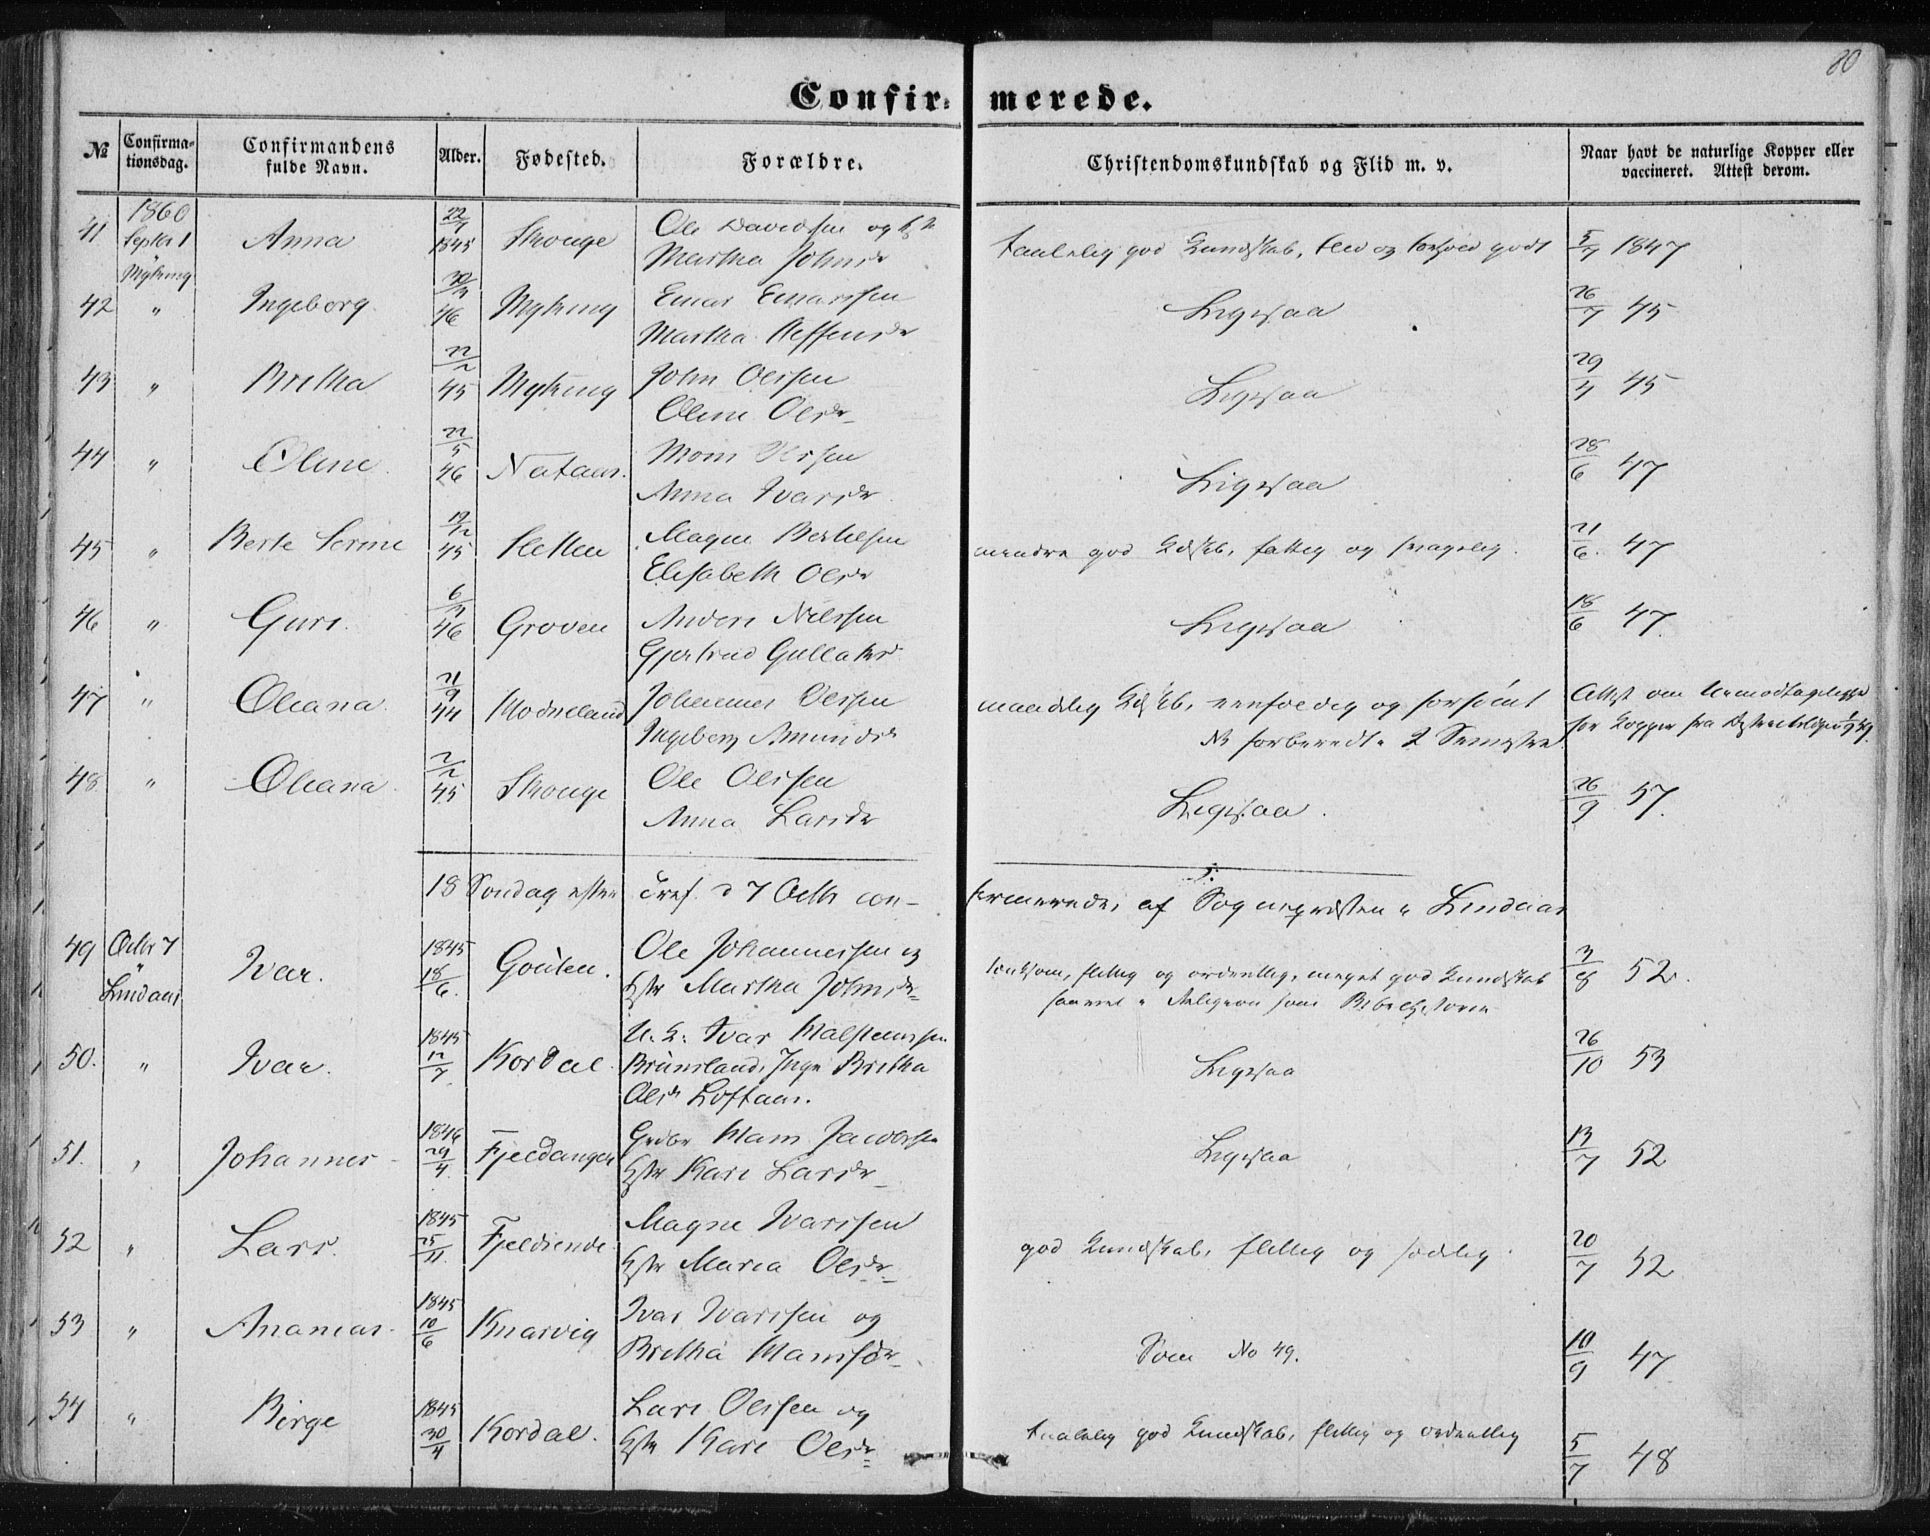 80
Confirmerede.
№ Confirmationsdag. Confirmandens fulde Navn. Alder. Fødested. Forældre. Christendomskundskab og Flid m. v. Naar havt de naturlige Kopper eller vaccineret. Attest derom.
1860
41 Septbr 1 Anna 1845 Skouge Ole Davidsen og
Myking Martha Johnsdr taalelig god Kundskab, Flid og Forhold godt 5/7 1847
42 " Ingeborg 46 Myking Einar Einarssen
Martha Steffensdr Ligesaa 26/7 45
43 " Britha 45 Myking John Olssen
Oline Olsdr Ligesaa 29/4 45
44 " Oline 22/5 46 Nataas. Mons Olssen
Anna Ivarsdr Ligesaa 28/6 47
45 " Berte Serine 19/12 45 Sletten Magne Berthelsen
Elisabeth Olsdr mindre god Kdskb, fattig og svagelig. 21/6. 47
46 " Guri. 46 Groven Anders Nilssen
Gjertrud Gullaksd. Ligesaa 18/6 47.
47 " Oleana 21/9 44 Modneland Johannes Olssen
Ingeborg Amundsdr maadelig Kdskb, eenfoldig og forsømt Attest om Uemodtagelighed
NB forberedt i 2 Semestre for Kopper fra
48 " Oleana. 2/2 45 Skouge Ole Olssen
Anna Larsdr Ligesaa. 26/9 57.
18 Søndag efter Tref. d 7 Octbr confirmerede, af Sognepresten i Lindaas
49 Octbr 7 Ivar. 1845 18/6. Gouten. Ole Johannessen og
Lindaas Hstr Martha Johnsdr lærdom, flittig og ordentlig, meget god Kundskab 3/8 52.
saavel i Religion som Bibelhistorie
50. " Ivar. 1845 12/7 Kordal. U. K. Ivar Malsteinssen
Bruneland, Inge Britha
Olsdr Loftaas. Ligesaa 26/10 53
51. " Johannes 1846 29/4 Fjeldanger Gdbr Mons Jacobsen
Hstr Kari Larsdr Ligesaa 13/7 52
52 " Lars. 1845 25/11. Fjeldsende. Magne Ivarssen
Hstr Maria Olsdr god Kundskab, flittig og sædelig. 20/7 52
53 " Ananias. 1845 10/6 Knarvig Ivar Ivarssen og
Britha Monsdr Som No 49. 10/9 47
54 " Børge 1845 30/4 Kordal. Lars Olssen og
Hstr Kari Olsdr taalelig god Kundskab, flittig og ordentlig 5/7 48